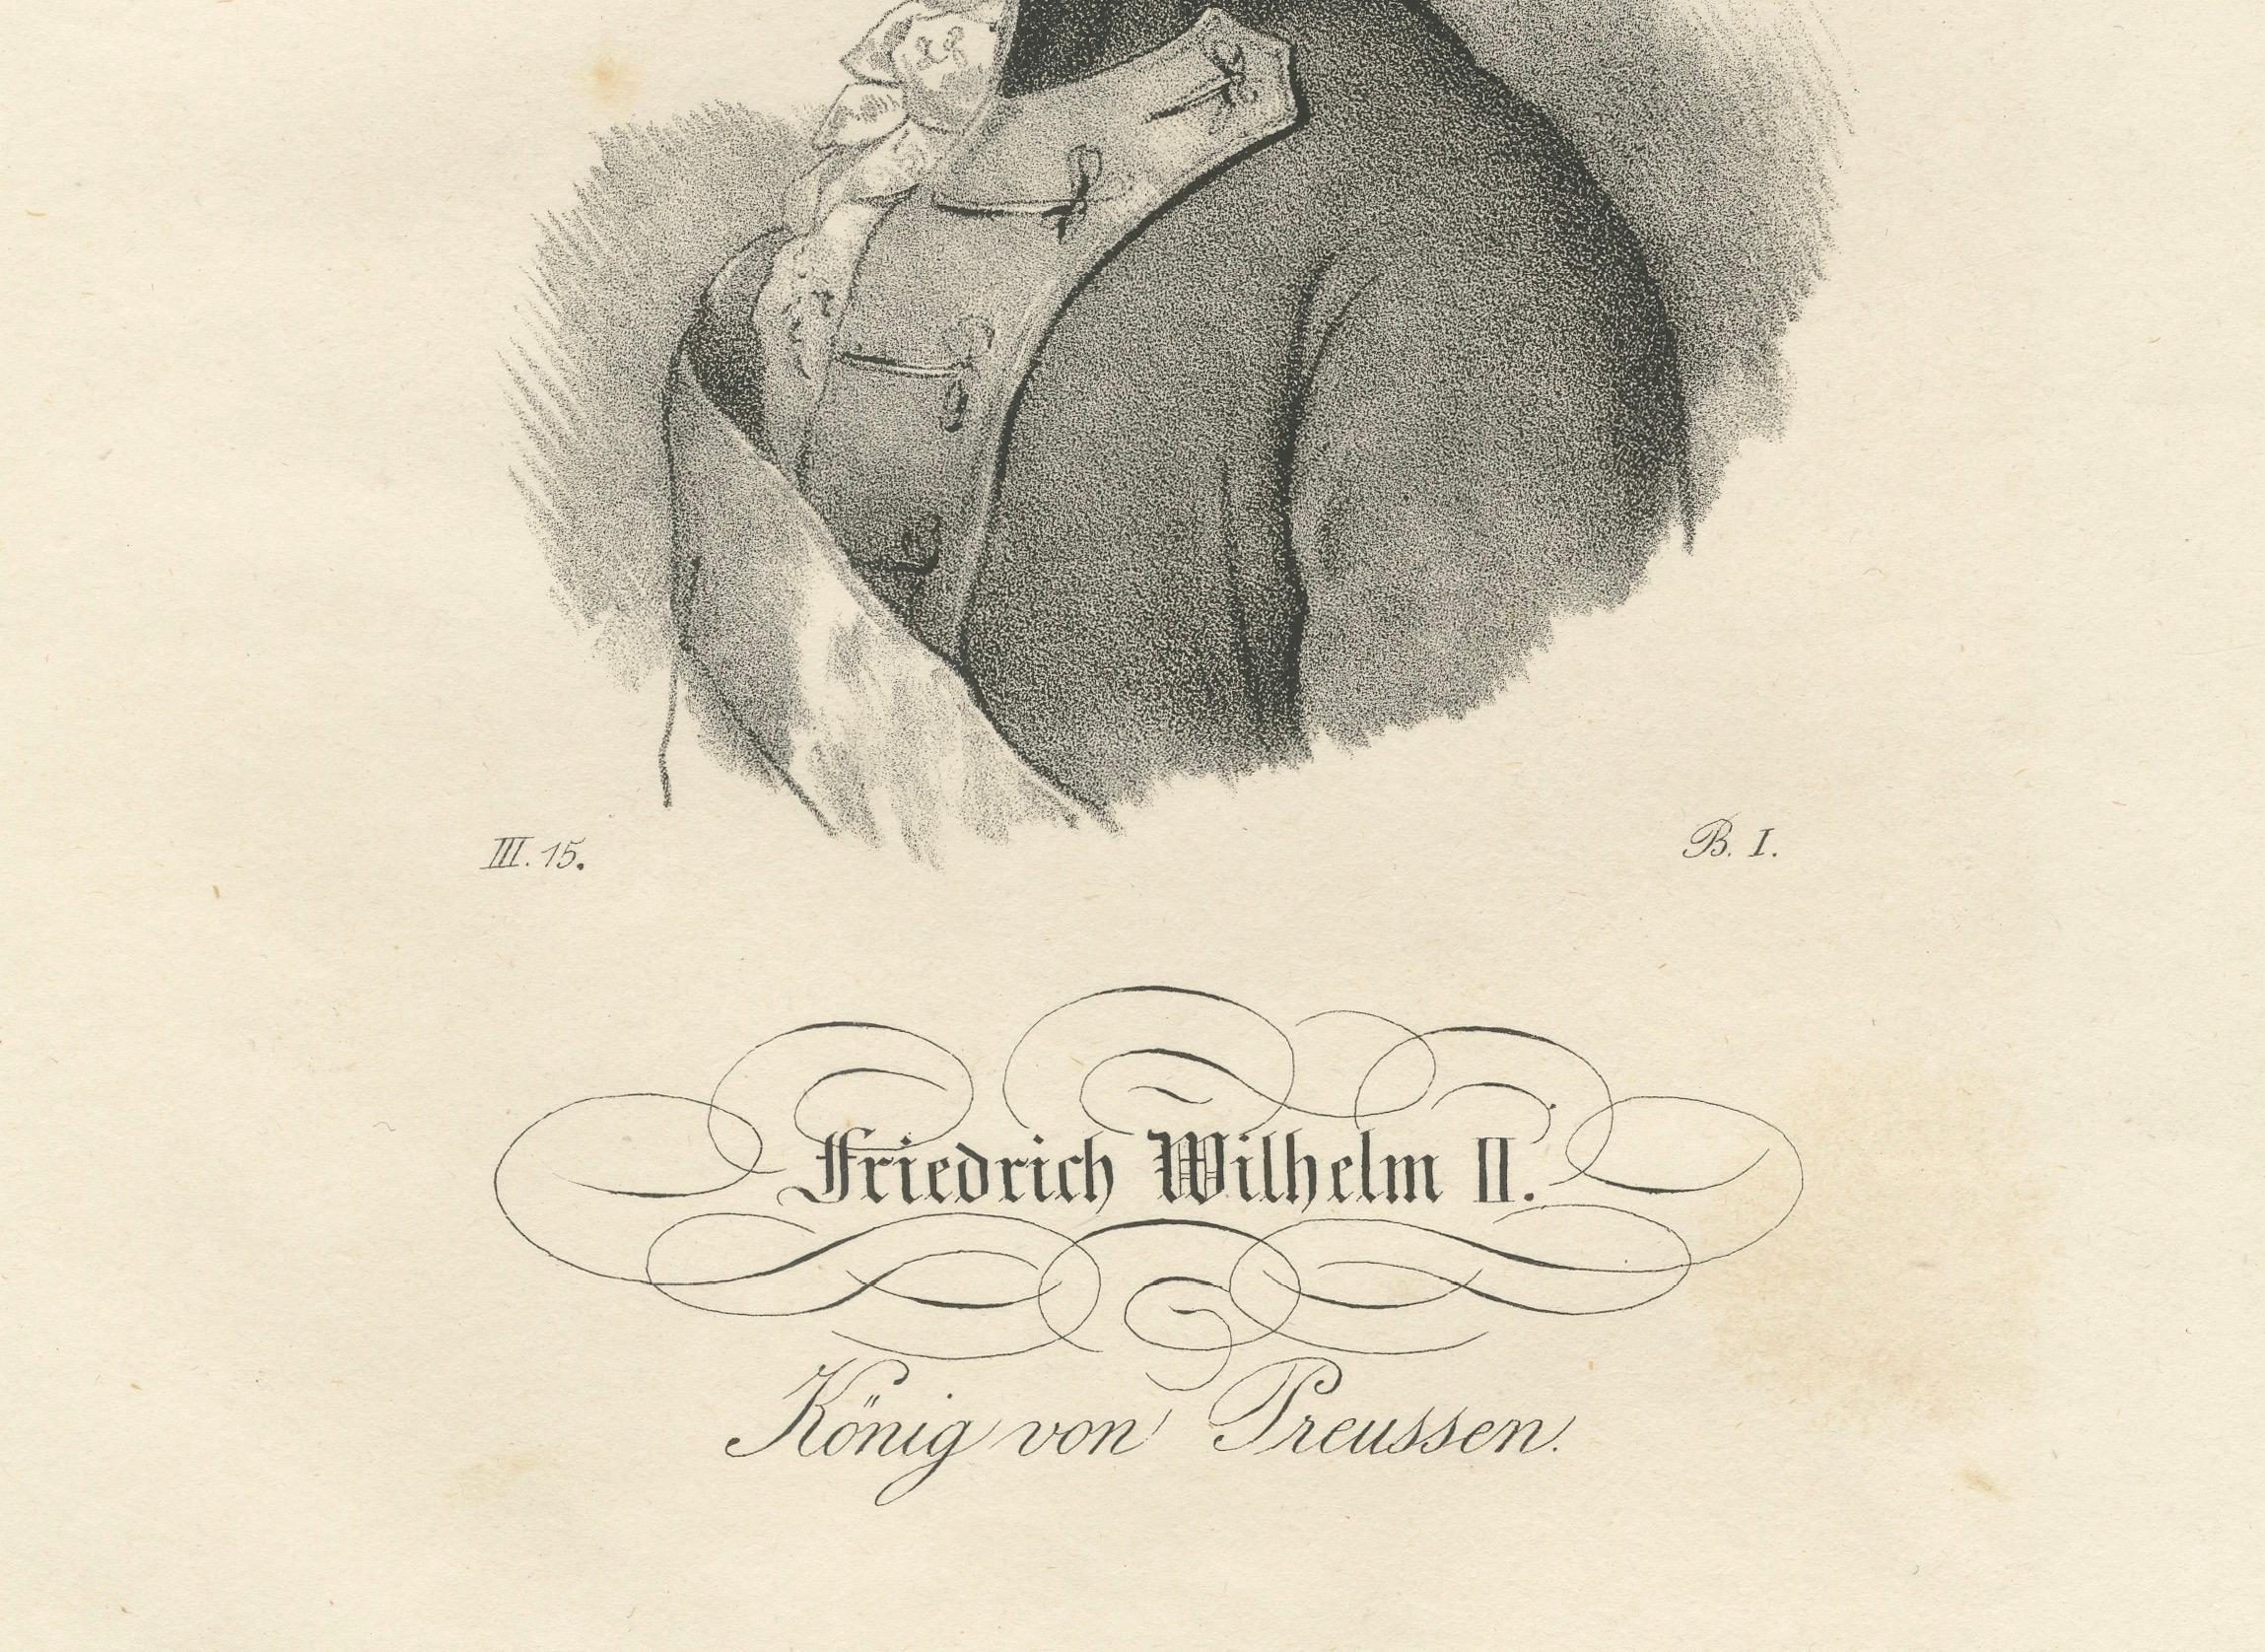 III. 15.
B. I.
Friedrich Wilhelm II.
König von Preussen.